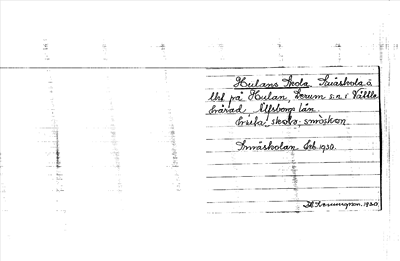 Hulans Skola. Småskola å
lht på Hulan, Lerum s:n i Vättle
härad Älfsborgs län.
skola, småskon
Småskolan Črb 1930.
1930.